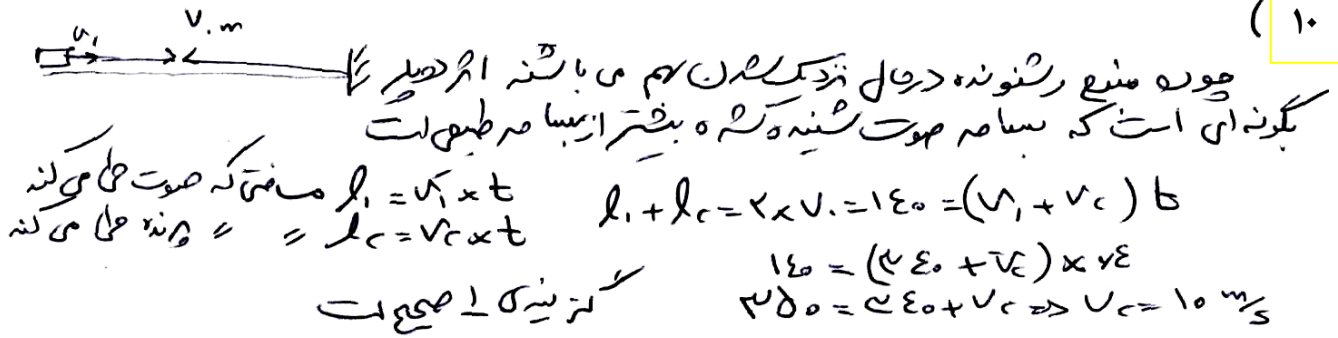 ۱۰ )
۷۰ m
چون منبع و شنونده در حال نزدیک شدن بهم می باشند اثر دوپلر
بگونه ای است که بسامد صوت شنیده شده بیشتر از بسامد طبیعی است
l₁ = V₁ × t مسافتی که صوت طی می کند
l₂ = V₂ × t " " پرنده طی می کند
l₁ + l₂ = ۲ × ۷۰ = ۱۴۰ = (V₁ + V₂) t
۱۴۰ = (۳۴۰ + V₂) × ۰/۴
۳۵۰ = ۳۴۰ + V₂ => V₂ = ۱۰ m/s
گزینه ی ۱ صحیح است